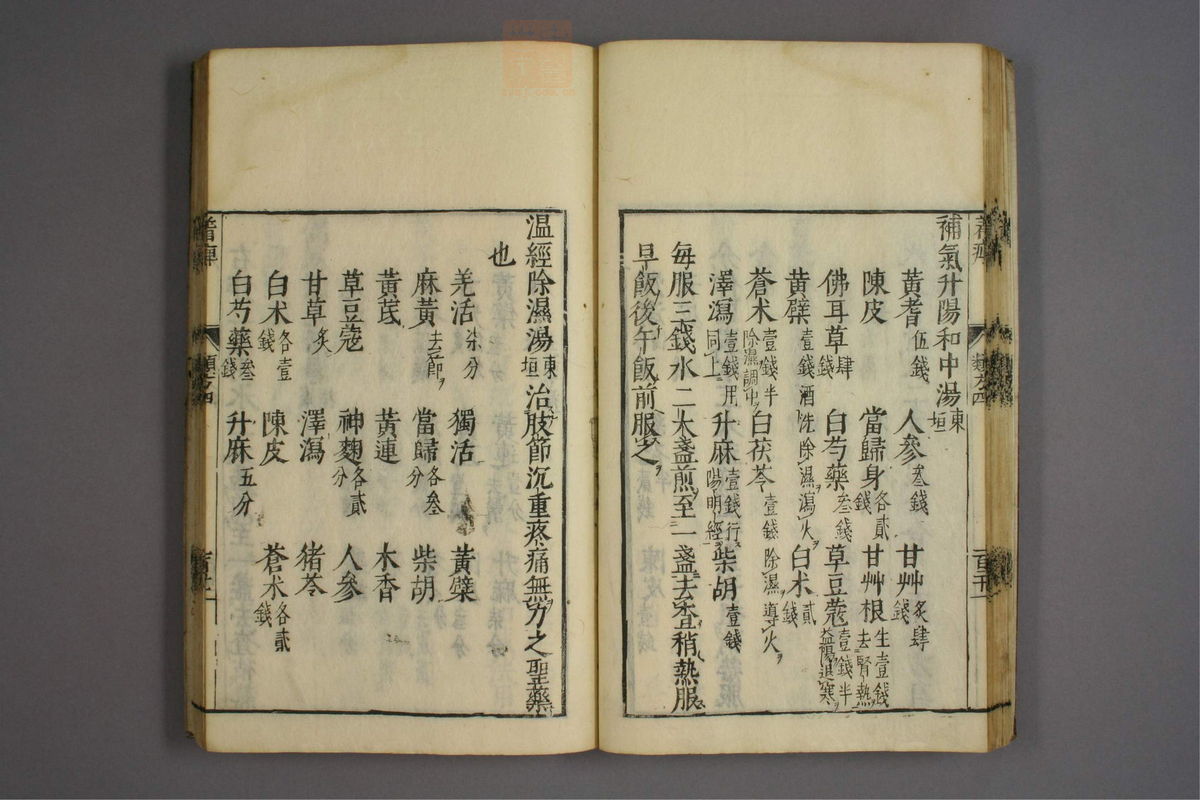 補氣升陽和中湯東垣
黃耆伍錢 人參叁錢 甘艸炙肆錢
陳皮 當歸身各貳錢 甘艸根生壹錢去腎熱
佛耳草肆錢 白芍藥叁錢 草豆蔻壹錢半益陽退寒
黃檗壹錢酒洗除濕瀉火 白术貳錢
蒼术壹錢半除濕調中 白茯苓壹錢除濕導火
澤瀉壹錢用同上 升麻壹錢行陽明經 柴胡壹錢
每服三錢水二大盞煎至一盞去查稍熱服
早飯後午飯前服之
溫經除濕湯東垣治肢節沉重疼痛無力之聖藥
也
羌活柒分 獨活 黃檗
麻黃去節 當歸各叁分 柴胡
黃芪 黃連 木香
草豆蔻 神麴各貳分 人參
甘草炙 澤瀉 猪苓
白术各壹錢 陳皮 蒼术各貳錢
白芍藥叁錢 升麻五分